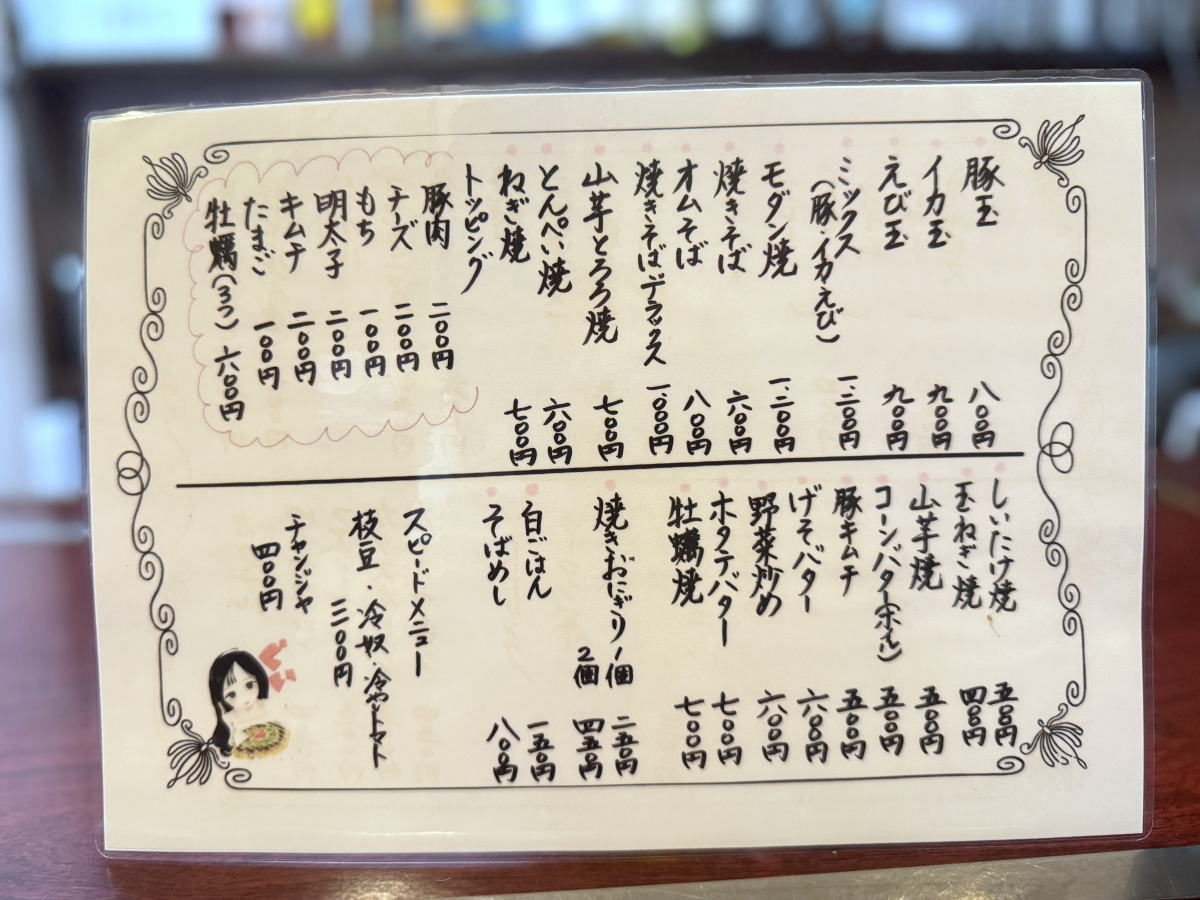 豚玉 八〇〇円
イカ玉 九〇〇円
えび玉 九〇〇円
ミックス
(豚・イカえび) 一、三〇〇円
モダン焼 一、二〇〇円
焼きそば 六〇〇円
オムそば 八〇〇円
焼きそばデラックス 一、〇〇〇円
山芋とろろ焼 七〇〇円
とんぺい焼 六〇〇円
ねぎ焼 七〇〇円
トッピング
豚肉 二〇〇円
チーズ 二〇〇円
もち 一〇〇円
明太子 二〇〇円
キムチ 二〇〇円
たまご 一〇〇円
牡蠣(3つ) 六〇〇円
しいたけ焼 五〇〇円
玉ねぎ焼 四〇〇円
山芋焼 五〇〇円
コーンバター(ホール) 五〇〇円
豚キムチ 五〇〇円
げそバター 六〇〇円
野菜炒め 六〇〇円
ホタテバター 七〇〇円
牡蠣焼 七〇〇円
焼きおにぎり 1個 二五〇円
2個 四五〇円
白ごはん 一五〇円
そばめし 八〇〇円
スピードメニュー
枝豆・冷奴・冷やしトマト
三〇〇円
チャンジャ
四〇〇円